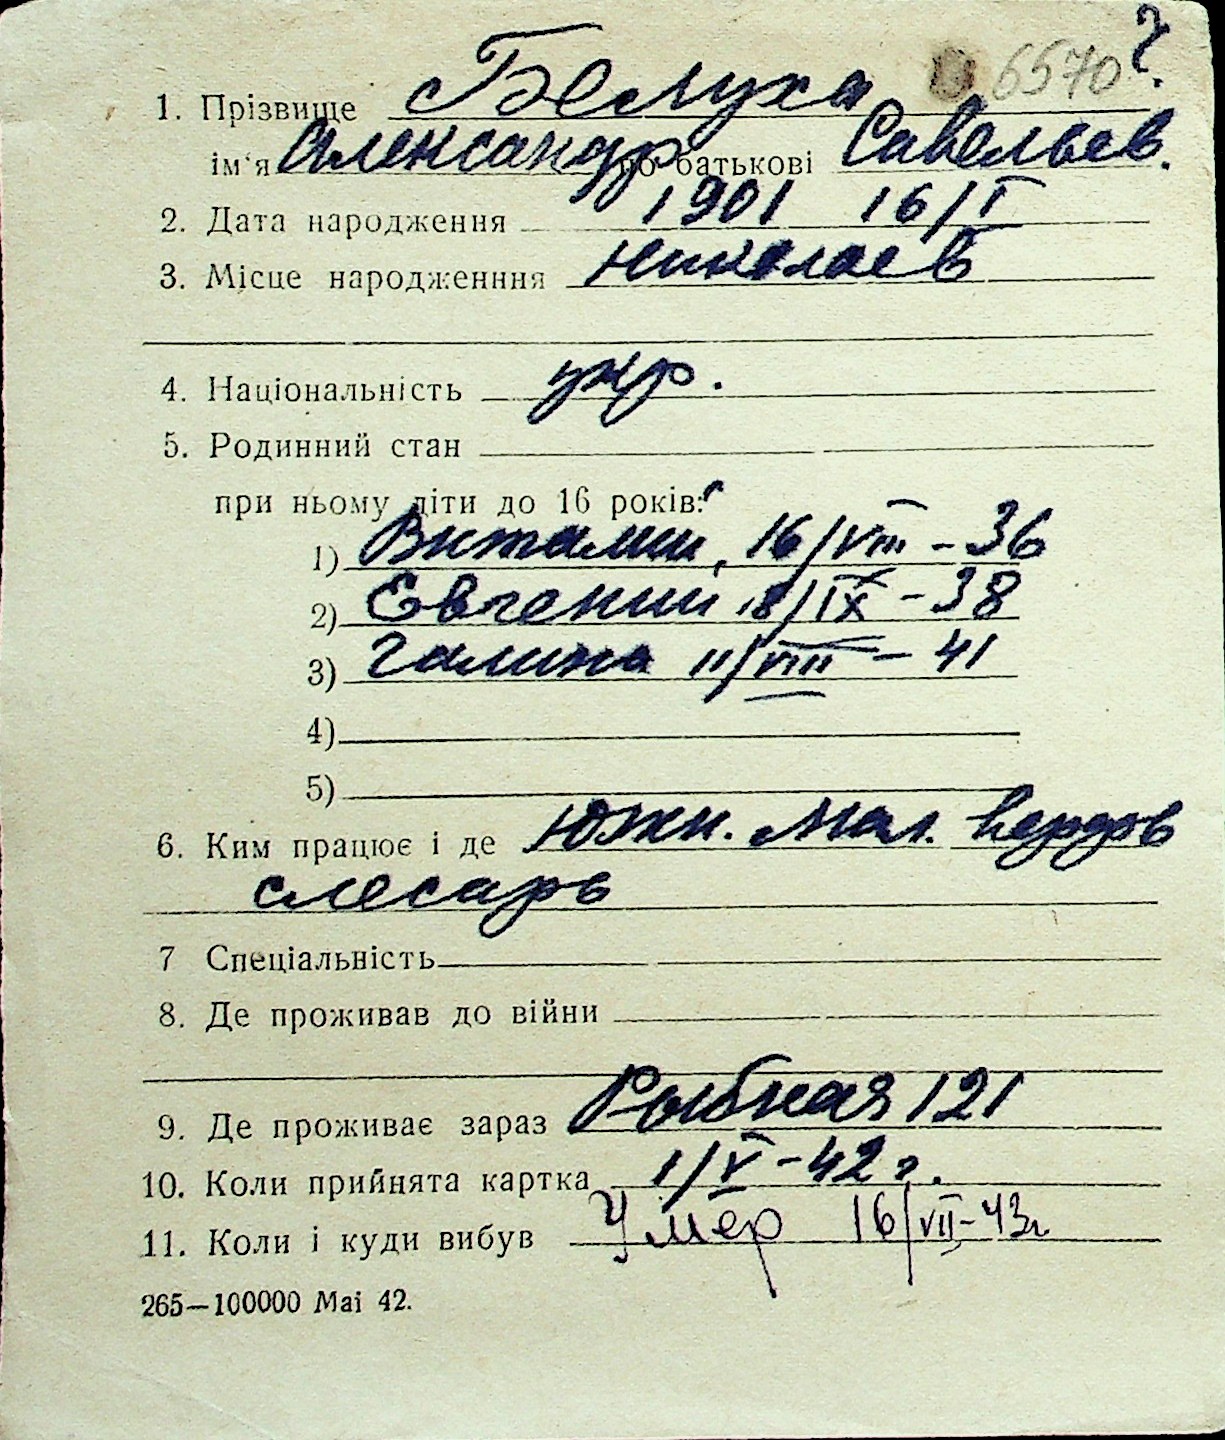 6570 ч.
1. Прізвище Белуха
ім'я Александр по батькові Савельев.
2. Дата народження 1901 16/I
3. Місце народженння Николаев
4. Національність укр.
5. Родинний стан
при ньому діти до 16 років:
1) Виталий, 16/VIII - 36
2) Евгений 18/IX - 38
3) Галина 11/VIII - 41
4)
5)
6. Ким працює і де Южн. Мал. верфь
слесарь
7 Спеціальність
8. Де проживав до війни
9. Де проживає зараз Рыбная 121
10. Коли прийнята картка 1/V - 42 г.
11. Коли і куди вибув Умер 16/VII - 43г
265—100000 Mai 42.